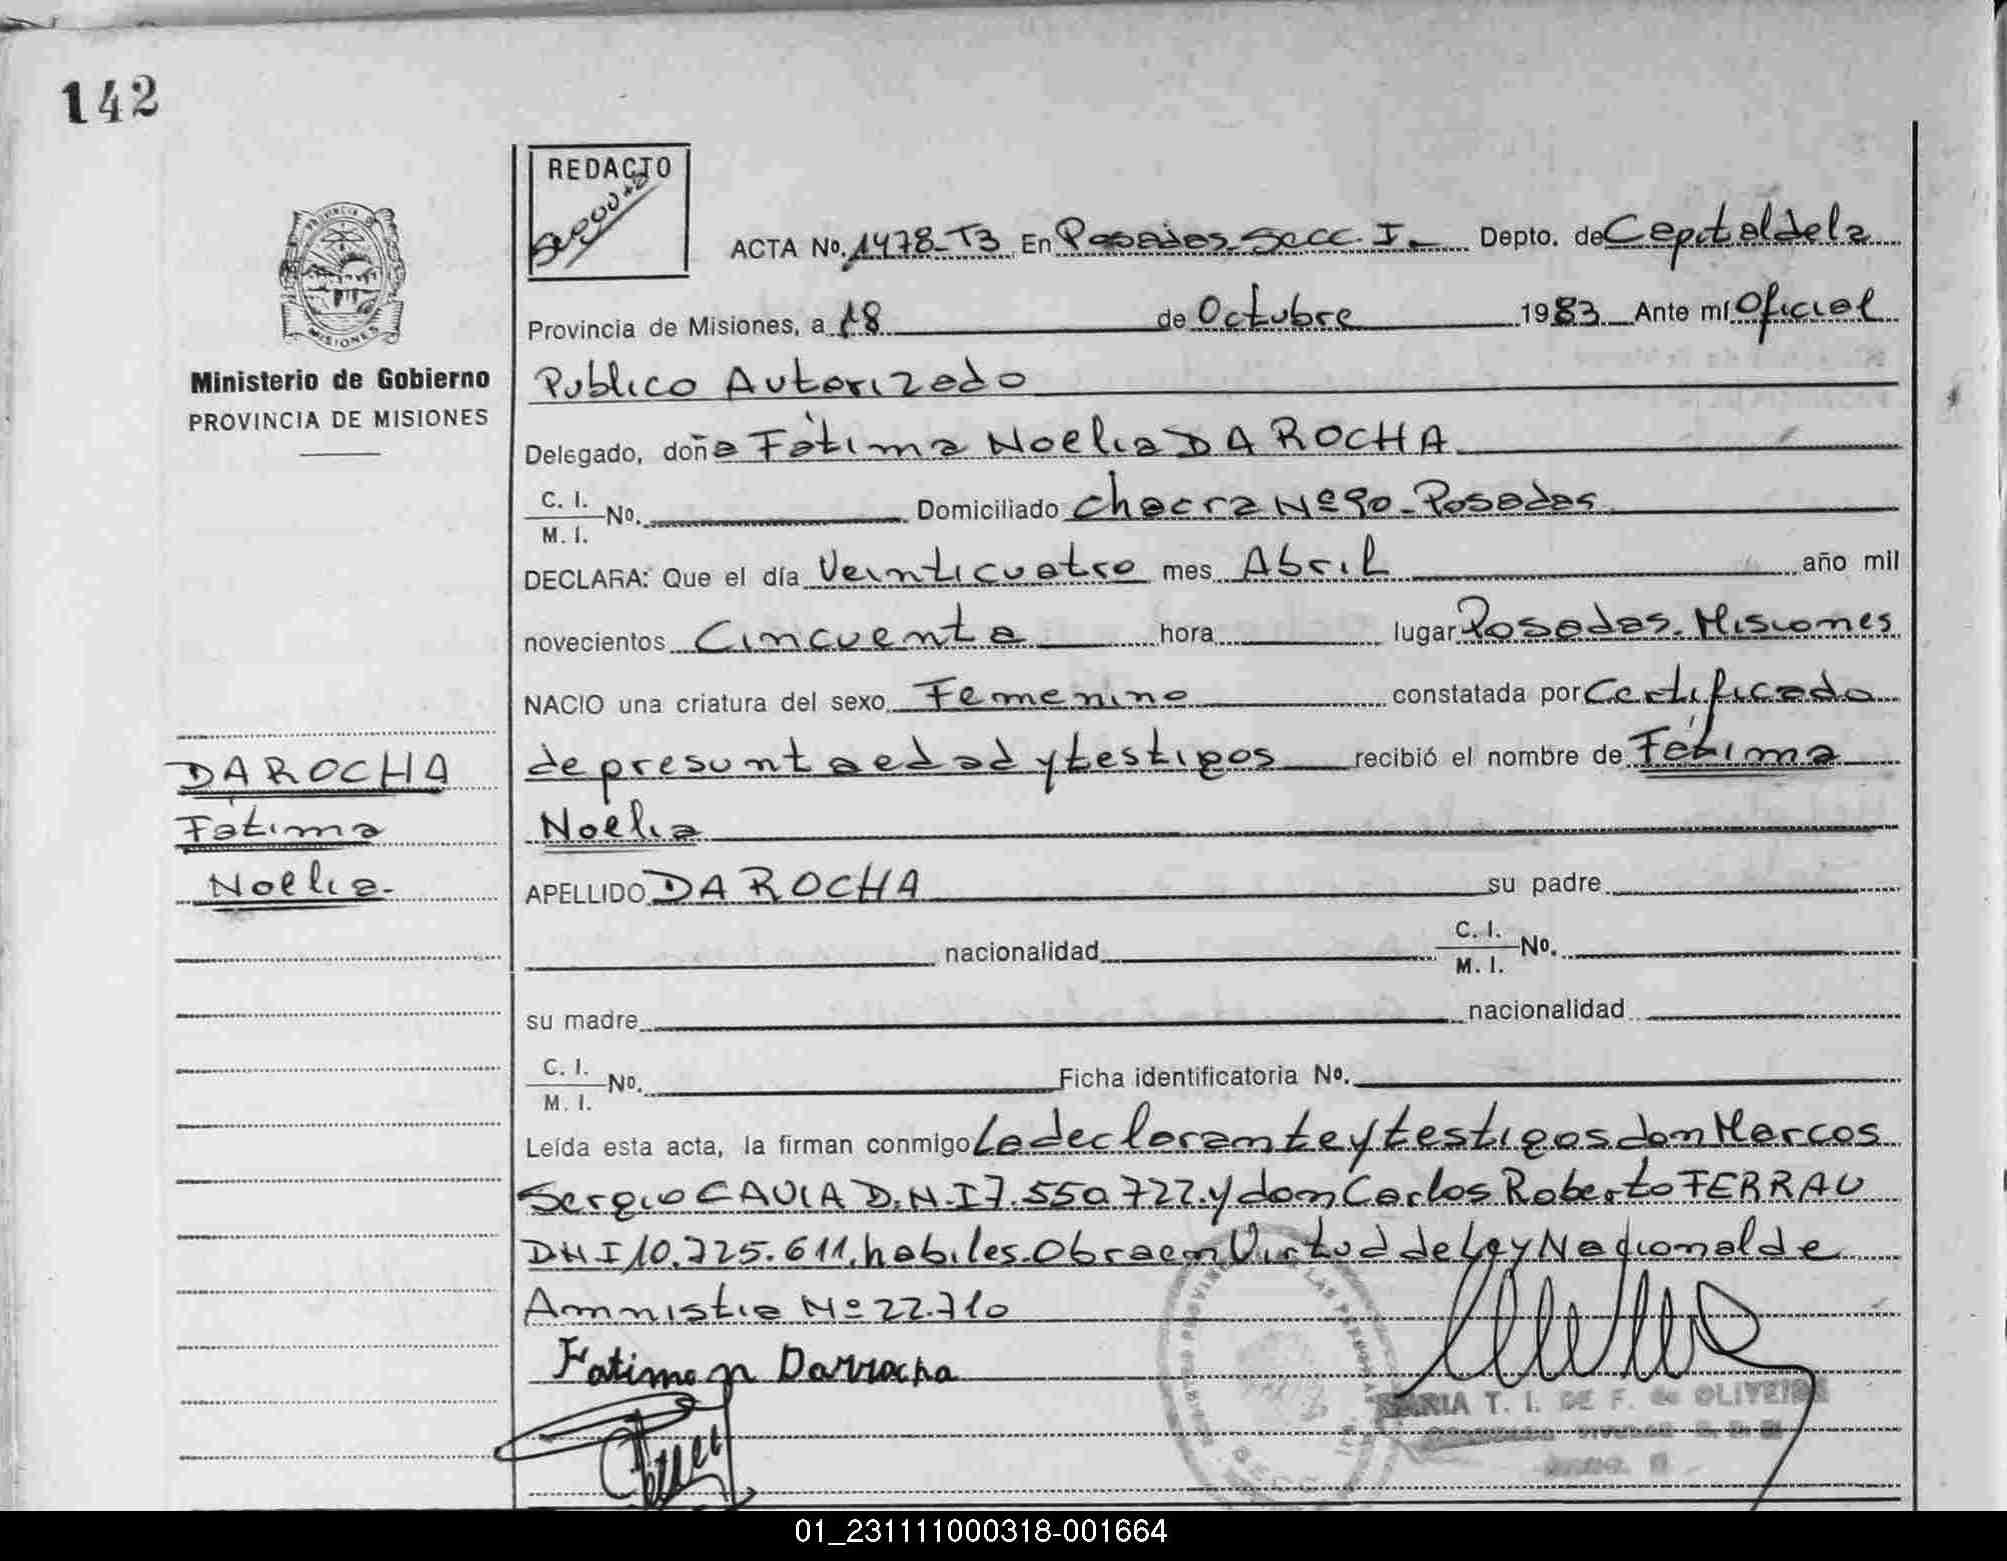 142
REDACTO
ACTA No. 1478-T3 En Posadas Secc. I. Depto. de Capital de la
Provincia de Misiones, a 18 de Octubre 1983 Ante mí Oficial
PROVINCIA DE
MISIONES
Ministerio de Gobierno
PROVINCIA DE MISIONES
Publico Autorizado
Delegado, doña Fátima Noelia DA ROCHA
C. I.
M. I. No. Domiciliado Chacra Nº 90 - Posadas
DECLARA: Que el día Veinticuatro mes Abril año mil
novecientos Cincuenta hora lugar Posadas. Misiones
NACIO una criatura del sexo Femenino constatada por Certificado
de presunta edad y testigos recibió el nombre de Fátima
Noelia
DA ROCHA
Fátima
Noelia.
APELLIDO DA ROCHA su padre
nacionalidad C. I.
M. I. No.
su madre nacionalidad
C. I.
M. I. No. Ficha identificatoria No.
Leída esta acta, la firman conmigo La declarante y testigos don Marcos
Sergio CAUIA D.N.I 7.550.727. y don Carlos Roberto FERRAU
DNI 10.725.611, habiles. Obra en Virtud de Ley Nacional de
Amnistia Nº 22.710
Fatima n Darrocha
MARIA T. I. DE F. de OLIVEIRA
01_231111000318-001664